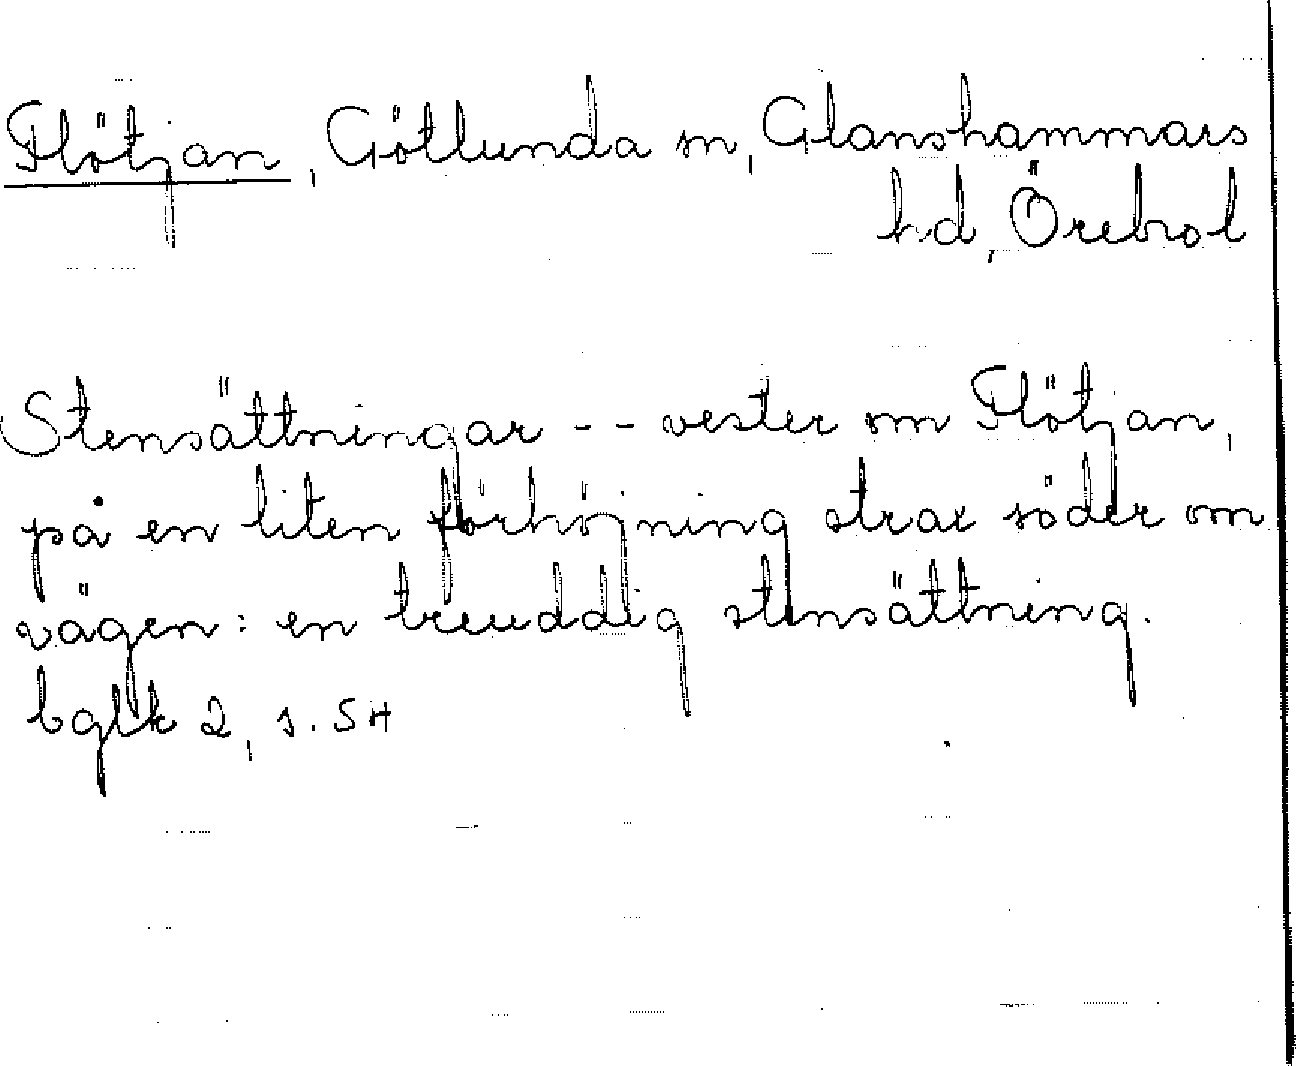 Flötjan, Götlunda sn, Glanshammars
hd, Örebro l
Stensättningar -- vester om Flötjan,
på en liten förhöjning strax söder om
vägen: en treuddig stensättning.
bglk 2, s. 54